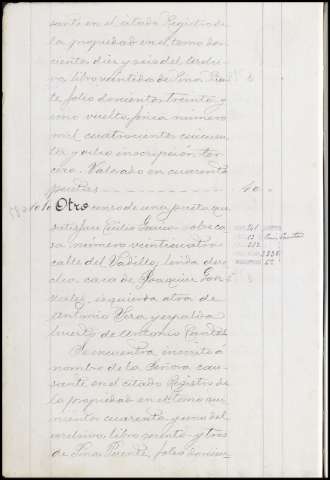 sante en el citado Registro de
la propiedad en el tomo dos-
cientos diez y seis del archi-
vo, libro veintidos de Pina Puen-
te, folio doscientos treinta y
uno vuelto, finca número
mil cuatrocientos cincuen-
ta y ocho inscripción ter-
cera. Valorado en cuarenta
pesetas 40
Otro censo de una peseta que
satisface Emilio García sobre ca-
sa número veinticuatro
calle del Vadillo, linda dere-
cha casa de Joaquin Gon-
zalez, izquierda otra de
Antonio Vera y espalda
huerto de Antonio
Se encuentra inscrito a
nombre de la Señora cau-
sante en el citado Registro de
la propiedad en el tomo qui-
nientos cuarenta y uno del
archivo, libro cuarenta y tres
de Puente, folio doscien-